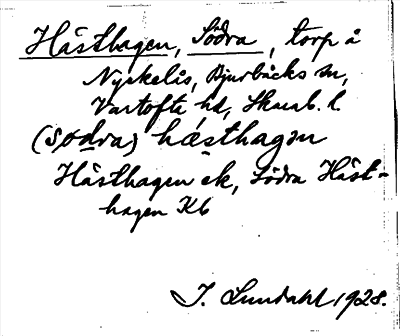 Hästhagen, Södra, torp å
Nyckelås, Djurbäcks sn,
Vartofta hd, Skarab. l.
(sødra) hæsthagən
Hästhagen ek, Södra Häst-
hagen Kb
I. Lundahl 1928.